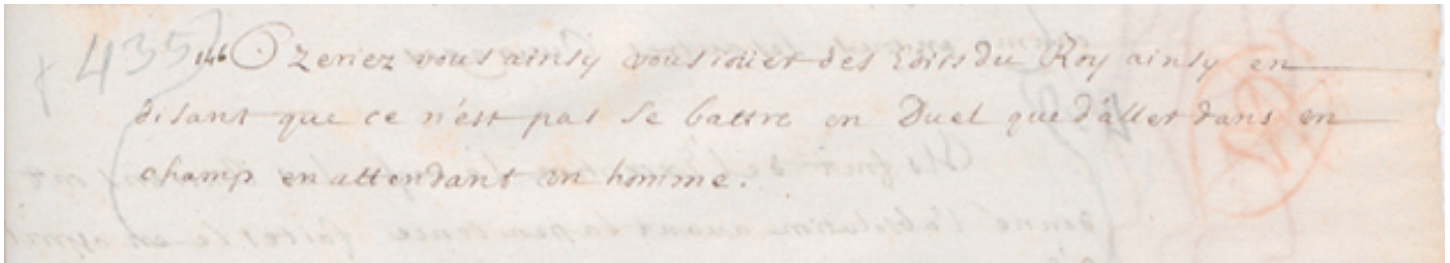 + 435) 146 Ozeriez vous ainsy vous iouer des Edits du Roy ainsy en
disant que ce n'est pas se battre en Duel que d'aller dans un
champ en attendant un homme.